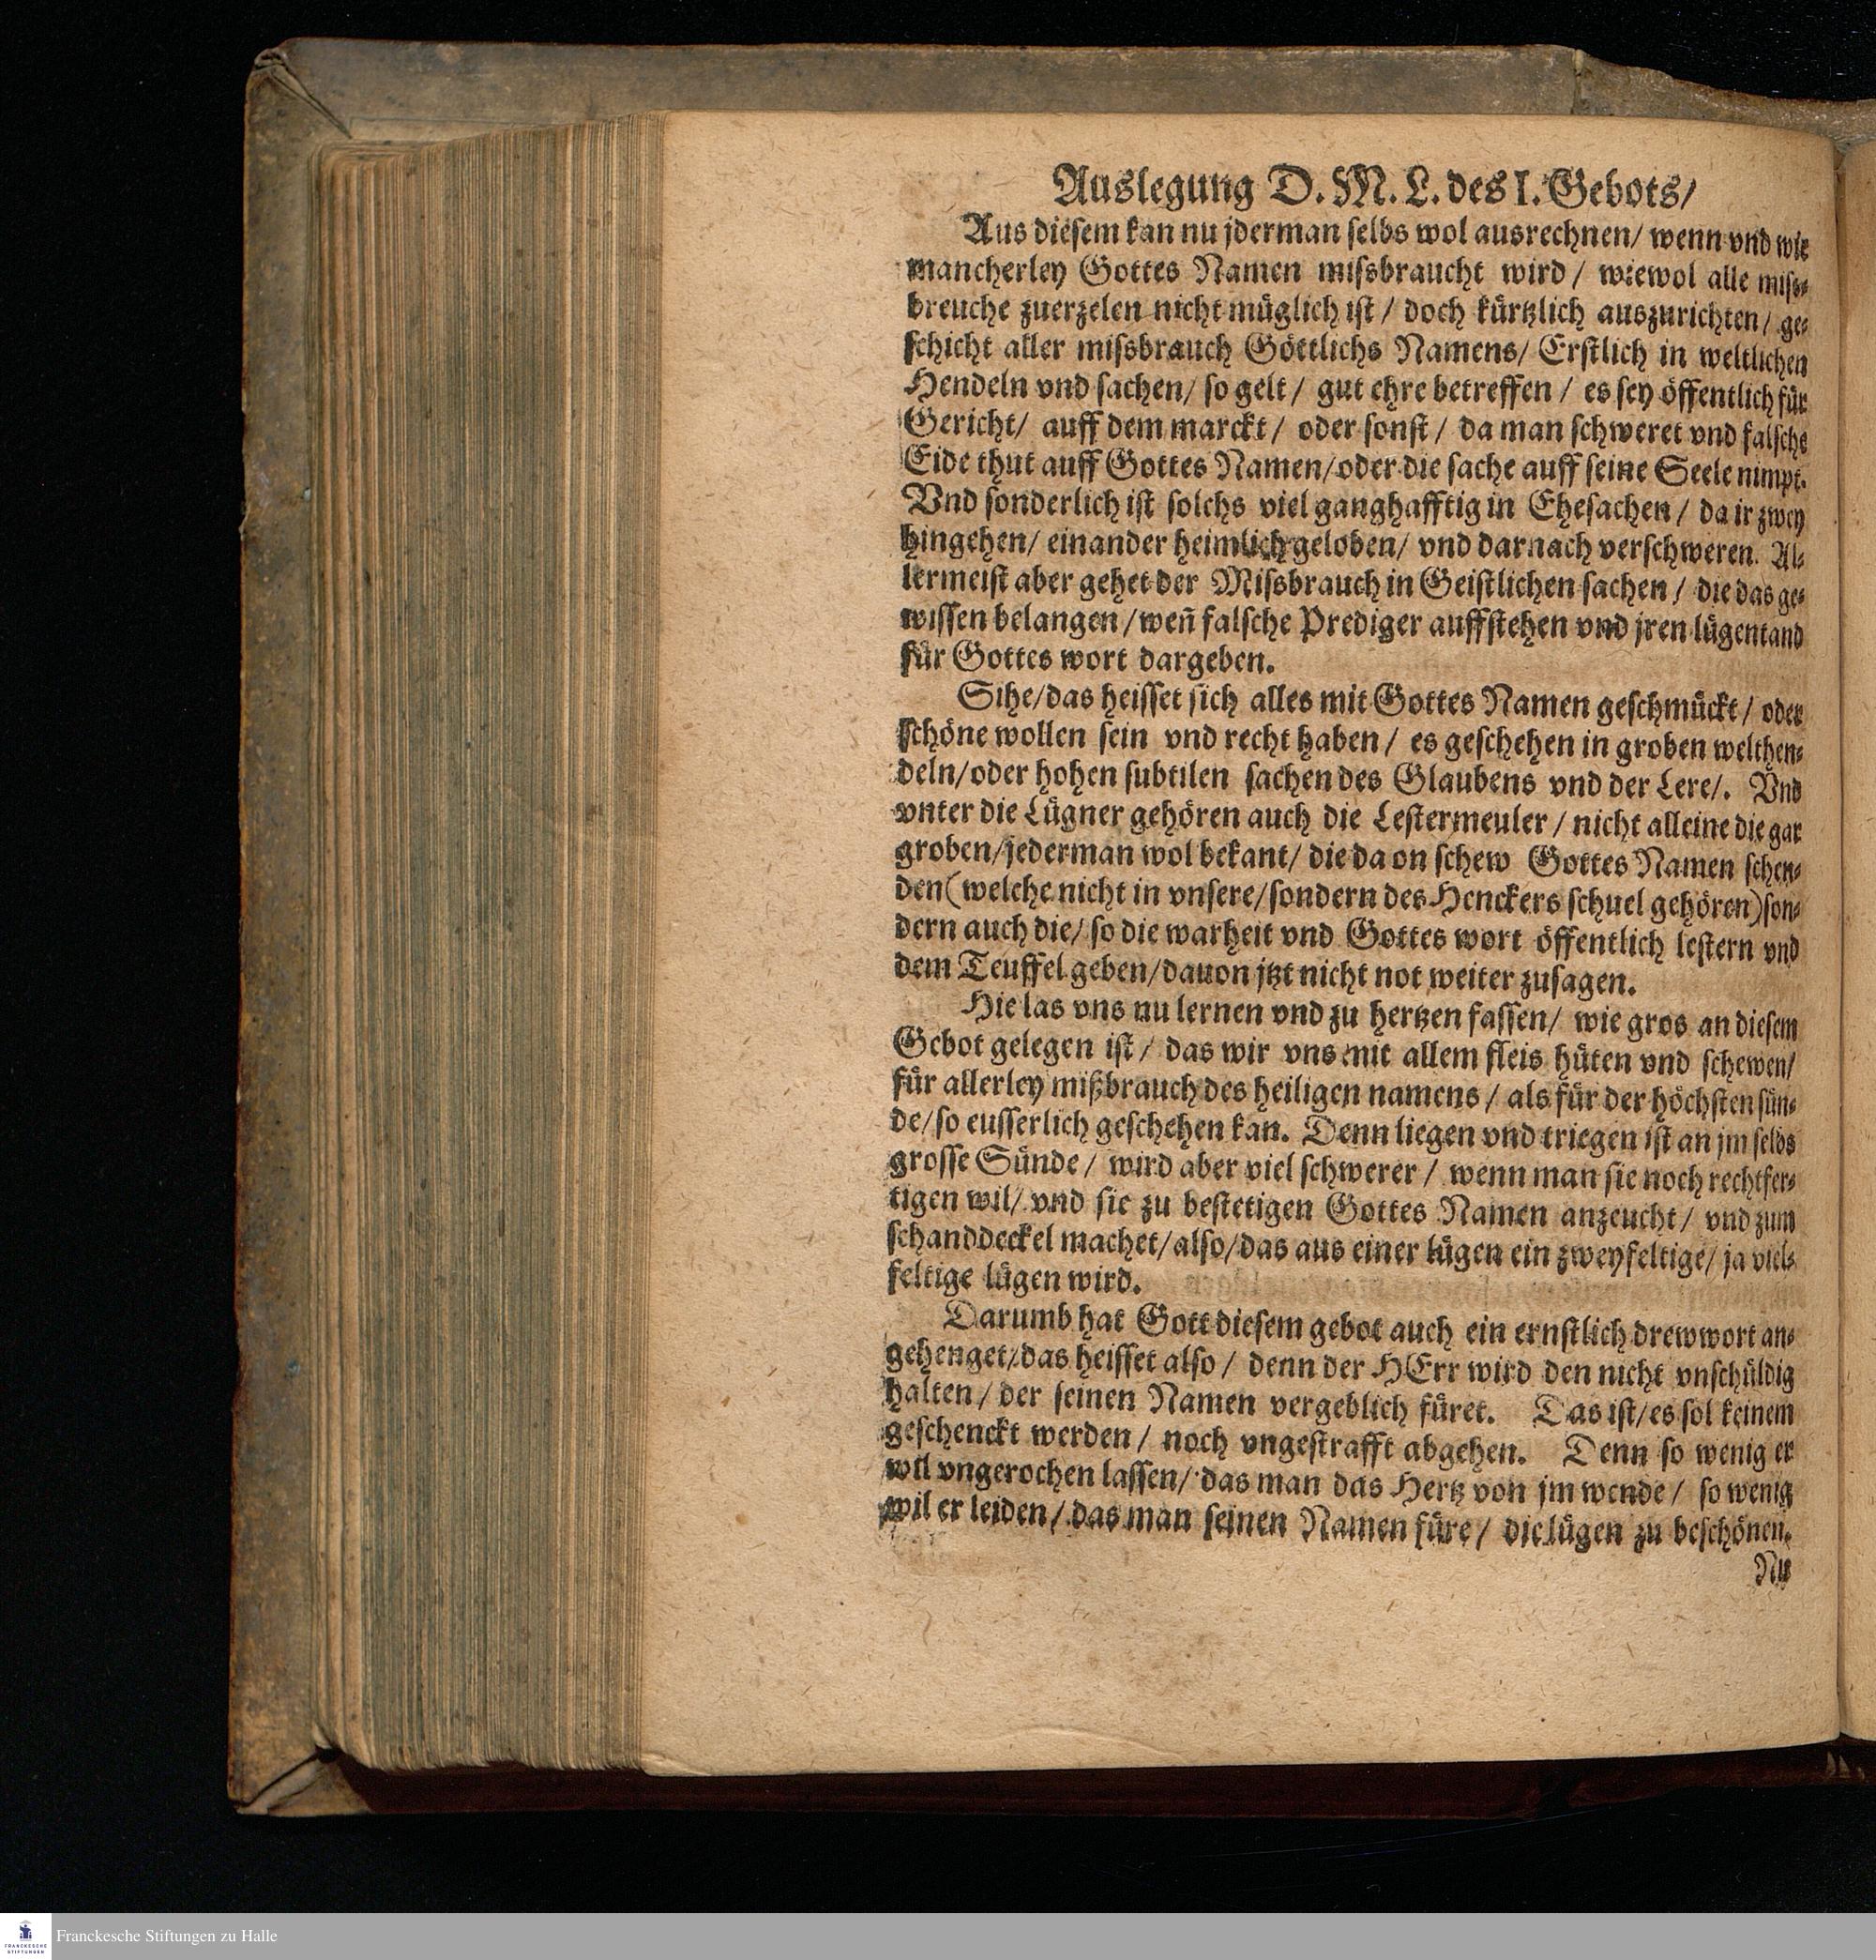 Auslegung D. M. L. des I. Gebots/
Aus diesem kan nu jderman selbs wol ausrechnen/ wenn vnd wie
mancherley Gottes Namen missbraucht wird/ wiewol alle miss-
breuche zuerzelen nicht müglich ist/ doch kürtzlich auszurichten/ ge-
schicht aller missbrauch Göttlichs Namens/ Erstlich in weltlichen
Hendeln vnd sachen/ so gelt/ gut ehre betreffen/ es sey öffentlich für
Gericht/ auff dem marckt/ oder sonst/ da man schweret vnd falsche
Eide thut auff Gottes Namen/oder die sache auff seine Seele nimpt.
Vnd sonderlich ist solchs viel ganghafftig in Ehesachen/ da ir zwey
hingehen/ einander heimlich geloben/ vnd darnach verschweren. Al-
lermeist aber gehet der Missbrauch in Geistlichen sachen/ die das ge-
wissen belangen/wen̄ falsche Prediger auffstehen vnd jren lügentand
für Gottes wort dargeben.
Sihe/das heisset sich alles mit Gottes Namen geschmückt/ oder
schöne wollen sein vnd recht haben/ es geschehen in groben welthen-
deln/oder hohen subtilen sachen des Glaubens vnd der Lere/. Vnd
vnter die Lügner gehören auch die Lestermeuler/ nicht alleine die gar
groben/jederman wol bekant/ die da on schew Gottes Namen schen-
den(welche nicht in vnsere/sondern des Henckers schuel gehören)son-
dern auch die/ so die warheit vnd Gottes wort öffentlich lestern vnd
dem Teuffel geben/dauon jtzt nicht not weiter zusagen.
Hie las vns nu lernen vnd zu hertzen fassen/ wie gros an diesem
Gebot gelegen ist/ das wir vns mit allem fleis hüten vnd schewen/
für allerley mißbrauch des heiligen namens/ als für der höchsten sün-
de/so eusserlich geschehen kan. Denn liegen vnd triegen ist an jm selbs
grosse Sünde/ wird aber viel schwerer/ wenn man sie noch rechtfer-
tigen wil/ vnd sie zu bestetigen Gottes Namen anzeucht/ vnd zum
schanddeckel machet/also/das aus einer lügen ein zweyfeltige/ ja viel-
feltige lügen wird.
Darumb hat Gott diesem gebot auch ein ernstlich drewwort an-
gehenget/das heisset also/ denn der HErr wird den nicht vnschüldig
halten/ der seinen Namen vergeblich füret. Das ist/es sol keinem
geschenckt werden/ noch vngestrafft abgehen. Denn so wenig er
wil vngerochen lassen/ das man das Hertz von jm wende/ so wenig
wil er leiden/ das man seinen Namen füre/ die lügen zu beschönen.
Nu
FRANCKESCHE
STIFTUNGEN
Franckesche Stiftungen zu Halle